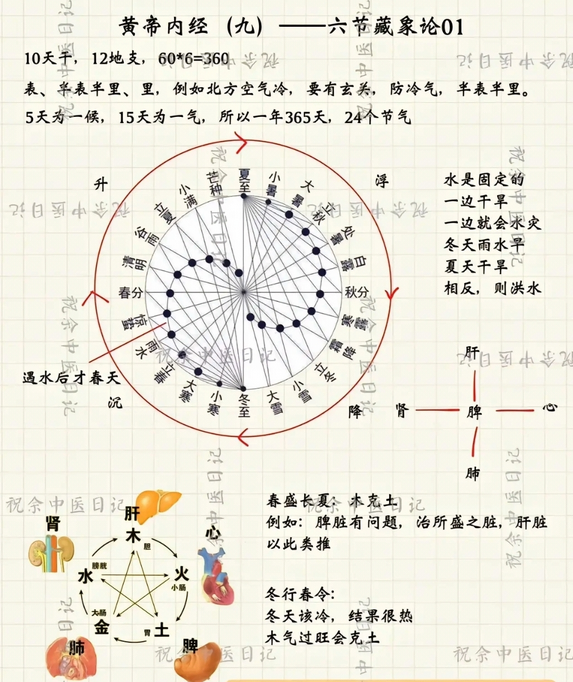 黄帝内经（九）——六节藏象论01
10天干，12地支，60*6=360
表、半表半里、里，例如北方空气冷，要有玄关，防冷气，半表半里。
5天为一候，15天为一气，所以一年365天，24个节气
升
浮
夏至
小暑
大暑
立秋
处暑
白露
秋分
寒露
霜降
立冬
小雪
大雪
冬至
小寒
大寒
立春
雨水
惊蛰
春分
清明
谷雨
立夏
小满
芒种
水是固定的
一边干旱
一边就会水灾
冬天雨水旱
夏天干旱
相反，则洪水
遇水后才春天
沉
降
肝
肾
脾
心
肺
春盛长夏：木克土
例如：脾脏有问题，治所盛之脏，肝脏
以此类推
冬行春令：
冬天该冷，结果很热
木气过旺会克土
肝
木
胆
肾
水
膀胱
心
火
小肠
大肠
金
肺
胃
土
脾
祝余中医日记
祝余中医日记
祝余中医日记
祝余中医日记
祝余中医日记